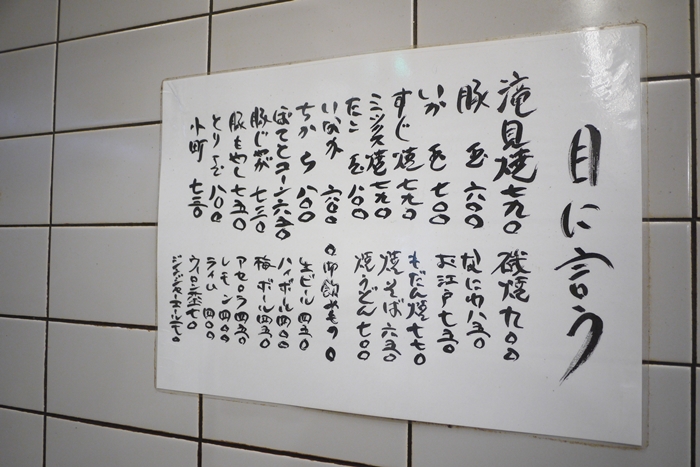 目に言う
滝見焼 七九〇
豚玉 六〇〇
いか玉 七〇〇
すじ焼 七九〇
ミックス焼
たこ玉 八〇〇
いなか 六〇〇
ちから 八〇〇
ぽてとコーン
豚じゃが 七三〇
豚もやし 七五〇
とり玉 八〇〇
小町 七三〇
磯焼 九〇〇
なにわ 八五〇
お江戸 七五〇
もだん焼 七七〇
焼そば 六五〇
焼うどん 七〇〇
〇御飲もの〇
生ビール 四五〇
ハイボール 四〇〇
梅ボール 四五〇
アセロラ 四五〇
レモン 四〇〇
ライム 四〇〇
ウーロン茶
ジンジャーエール